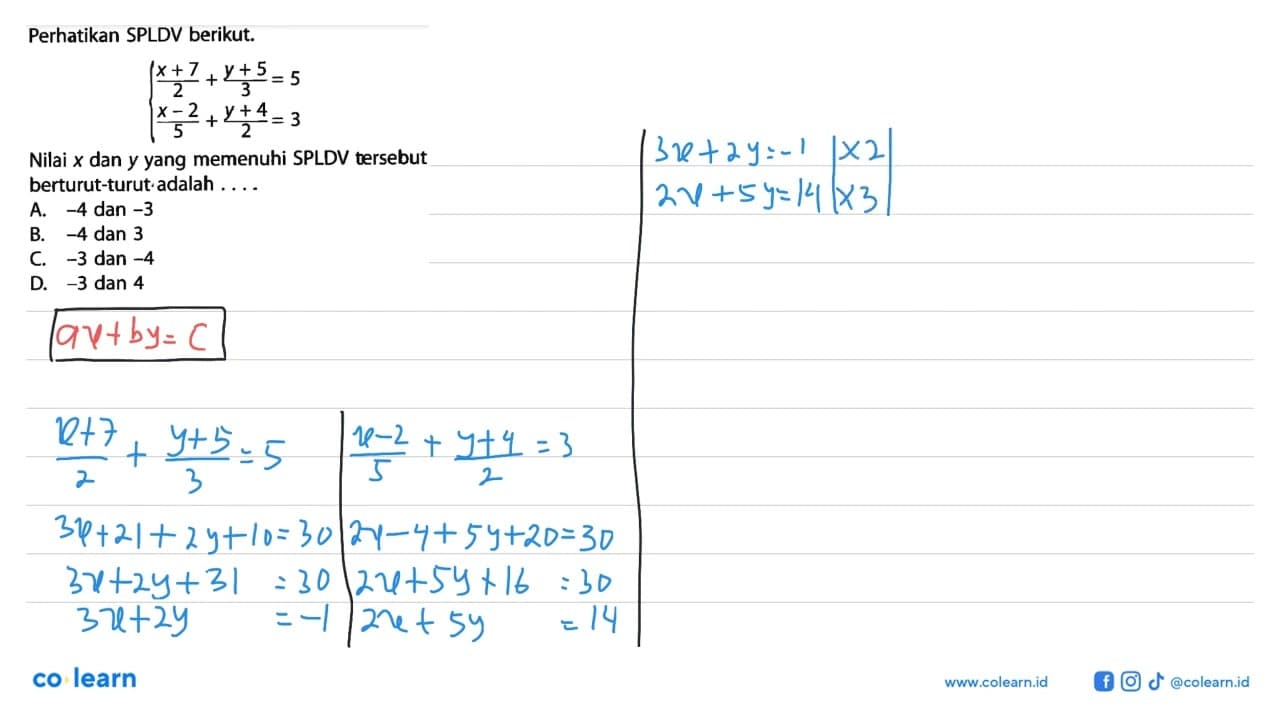 Perhatikan SPLDV berikut.
x + 7 / 2 + y + 5 / 3 = 5
x – 2 / 5 + y + 4 / 2 = 3
Nilai x dan y yang memenuhi SPLDV tersebut
berturut-turut adalah . . . .
A. –4 dan –3
B. –4 dan 3
C. –3 dan –4
D. –3 dan 4
ax+by=c
x+7 / 2 + y+5 / 3 = 5
3x+21+2y+10=30
3x+2y+31 = 30
3x+2y = -1
x-2 / 5 + y+4 / 2 = 3
2x-4+5y+20=30
2x+5y+16 = 30
2x+5y = 14
3x+2y=-1 |×2|
2x+5y=14 |×3|
co learn
www.colearn.id
@colearn.id